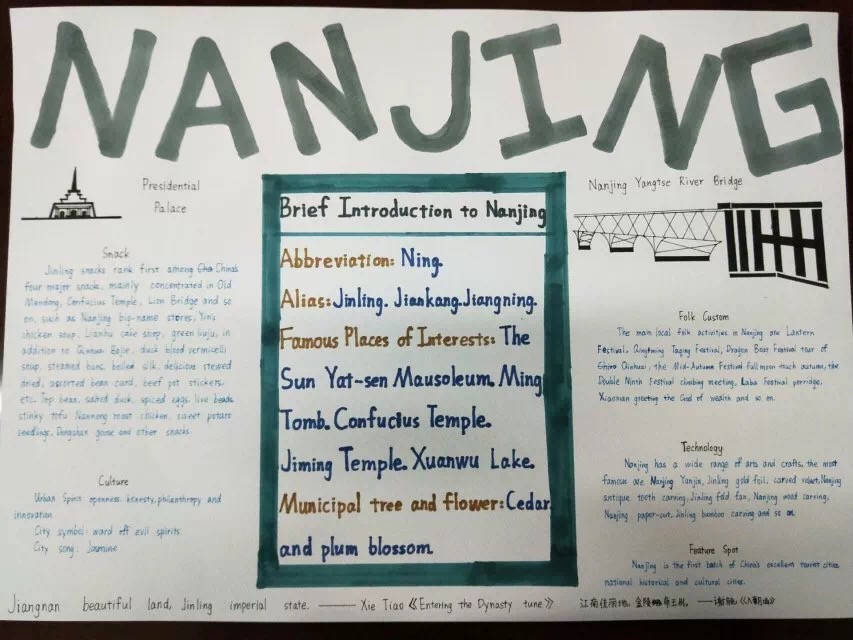 NANJING
Presidential
Palace
Snack
Jinling snacks rank first among China's
four major snacks, mainly concentrated in Old
Mendong, Confucius Temple, Lion Bridge and so
on, such as Nanjing big-name stores, Yin's
chicken soup, Lianhu cake shop, green liuju, in
addition to Qinhuai Bajie, duck blood vermicelli
soup, steamed buns, boiled silk, delicious stewed
dried, assorted bean curd, beef pot stickers,
etc. Top bean, salted duck, spiced eggs, live beads
stinky tofu Nannong roast chicken, sweet potato
seedlings, Dongshan goose and other snacks.
Culture
Urban Spirit openness, honesty, philanthropy and
innovation
City symbol: ward off evil spirits
City song: Jasmine
Brief Introduction to Nanjing
Abbreviation: Ning.
Alias: Jinling. Jiankang. Jiangning.
Famous Places of Interests: The
Sun Yat-sen Mausoleum. Ming
Tomb. Confucius Temple.
Jiming Temple. Xuanwu Lake.
Municipal tree and flower: Cedar
and plum blossom
Nanjing Yangtse River Bridge
Folk Custom
The main local folk activities in Nanjing are Lantern
Festival, Qingming Taqing Festival, Dragon Boat Festival tour of
Qinhuai, the Mid-Autumn Festival full moon touch autumn, the
Double Ninth Festival climbing meeting, Laba Festival porridge,
Xiaonian greeting the God of wealth and so on.
Technology
Nanjing has a wide range of arts and crafts, the most
famous are Nanjing Yunjin, Jinling gold foil, carved velvet, Nanjing
antique tooth carving, Jinling fold fan, Nanjing wood carving,
Nanjing paper-cut, Jinling bamboo carving and so on.
Feature Spot
Nanjing is the first batch of China's excellent tourist cities,
national historical and cultural cities.
Jiangnan beautiful land, Jinling imperial state. —— Xie Tiao 《Entering the Dynasty tune》 江南佳丽地, 金陵帝王州。 ——谢朓《入朝曲》